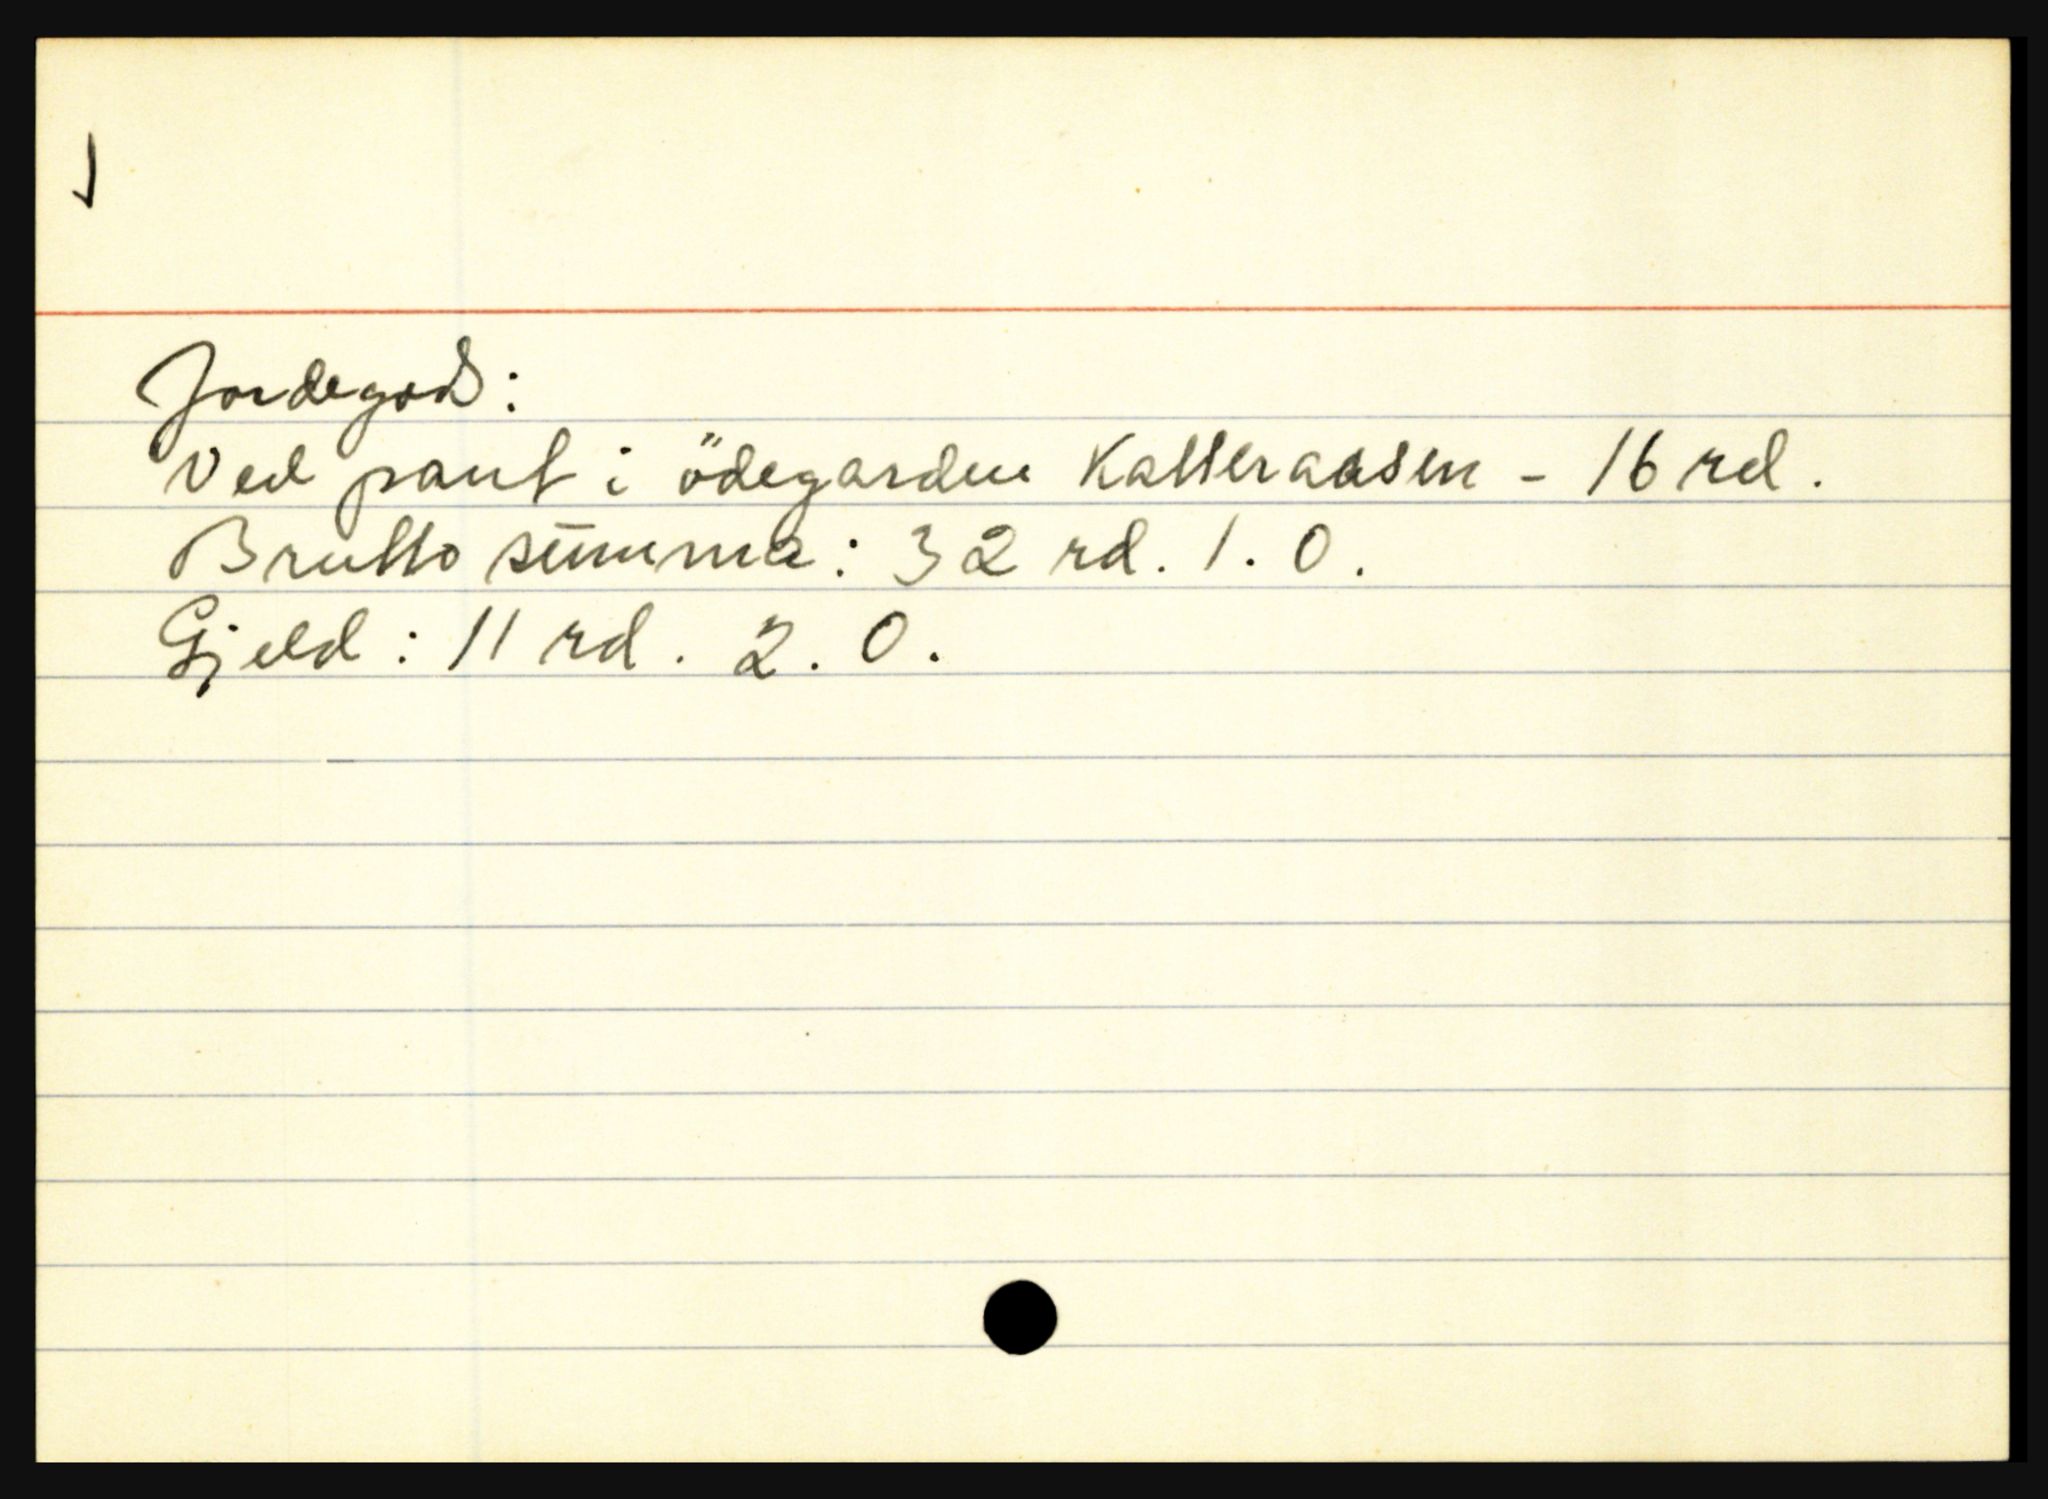 Jordegods:
Ved pant i ödegarden Katteraasen - 16 rd.
Brutto summa: 32 rd. 1. 0.
Gjeld: 11 rd. 2. 0.